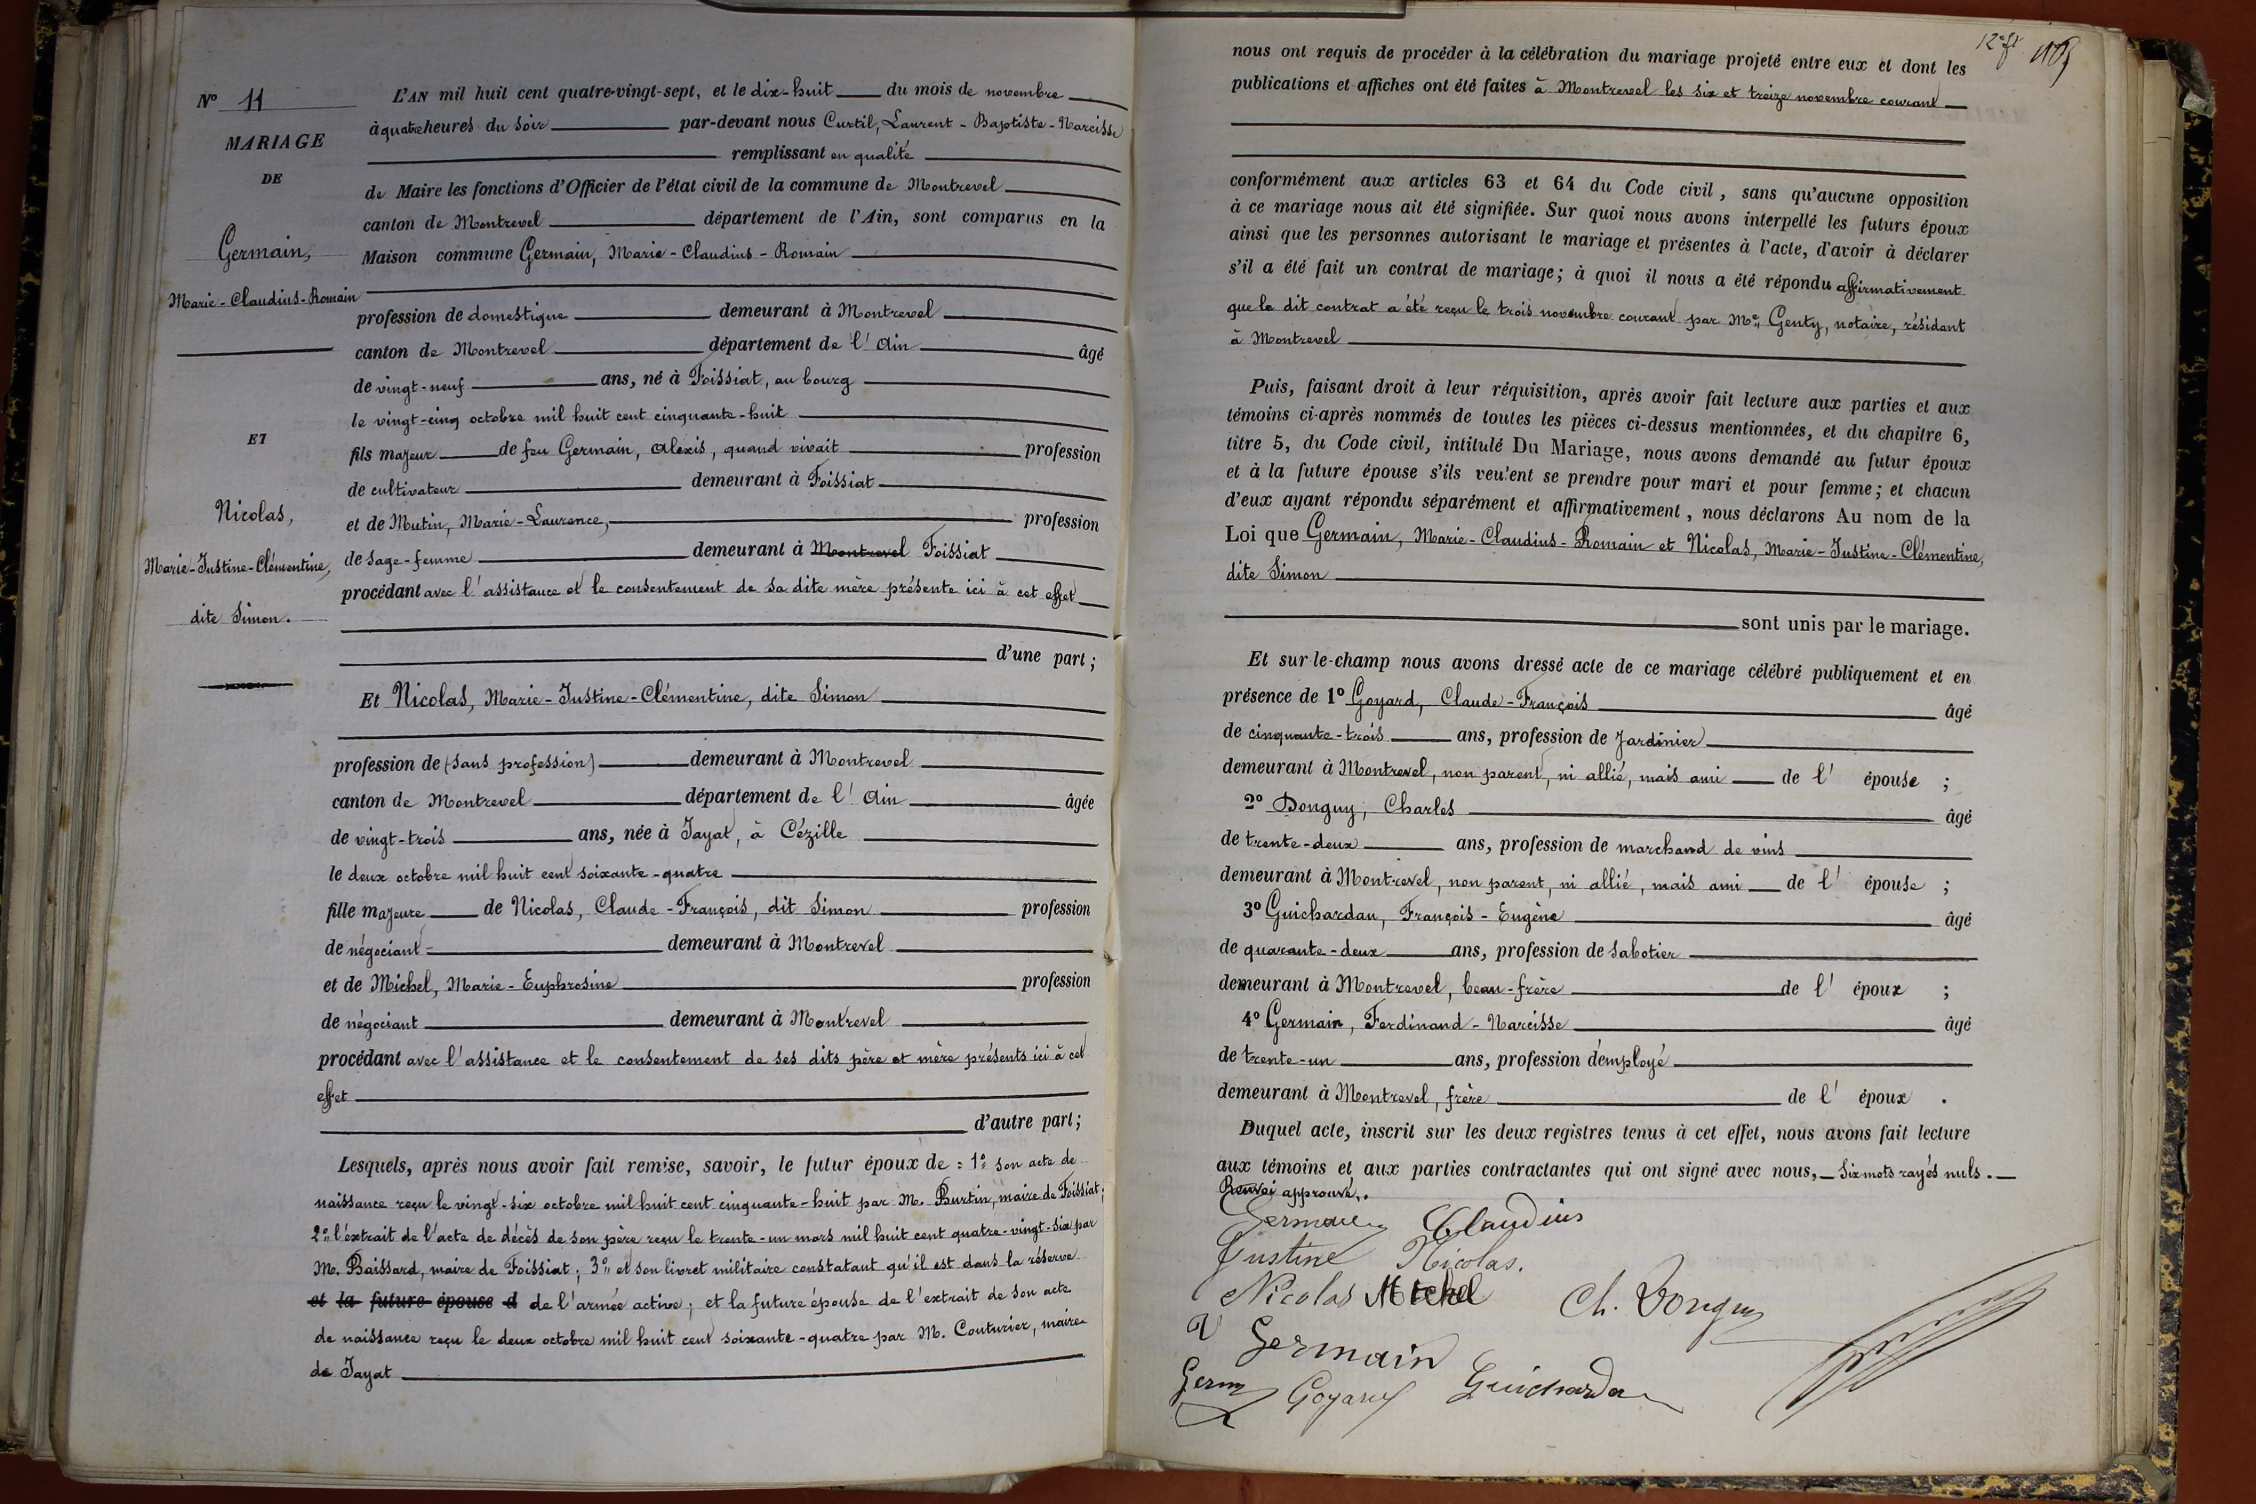 N° 11
MARIAGE
DE
Germain,
Marie-Claudius-Romain
ET
Nicolas,
Marie-Justine-Clémentine,
dite Simon.
L'AN mil huit cent quatre-vingt-sept, et le dix-huit du mois de novembre
à quatre heures du soir par-devant nous Curtil, Laurent-Baptiste-Narcisse
remplissant en qualité
de Maire les fonctions d'Officier de l'état civil de la commune de Montrevel
canton de Montrevel département de l'Ain, sont comparus en la
Maison commune Germain, Marie-Claudius-Romain
profession de domestique demeurant à Montrevel
canton de Montrevel département de l'Ain âgé
de vingt-neuf ans, né à Foissiat, au bourg
le vingt-cinq octobre mil huit cent cinquante-huit
fils majeur de feu Germain, Alexis, quand vivait profession
de cultivateur demeurant à Foissiat
et de Mutin, Marie-Laurence, profession
de sage-femme demeurant à Montrevel Foissiat
procédant avec l'assistance et le consentement de sa dite mère présente ici à cet effet
d'une part;
Et Nicolas, Marie-Justine-Clémentine, dite Simon
profession de (sans profession) demeurant à Montrevel
canton de Montrevel département de l'Ain âgée
de vingt-trois ans, née à Jayat, à Cézille
le deux octobre mil huit cent soixante-quatre
fille majeure de Nicolas, Claude-François, dit Simon profession
de négociant demeurant à Montrevel
et de Michel, Marie-Euphrosine profession
de négociant demeurant à Montrevel
procédant avec l'assistance et le consentement de ses dits père et mère présents ici à cet
effet
d'autre part;
Lesquels, après nous avoir fait remise, savoir, le futur époux de : 1° son acte de
naissance reçu le vingt-six octobre mil huit cent cinquante-huit par M. Burtin, maire de Foissiat;
2° l'extrait de l'acte de décès de son père reçu le trente-un mars mil huit cent quatre-vingt-six par
M. Baissard, maire de Foissiat; 3° et son livret militaire constatant qu'il est dans la réserve
et la future épouse d de l'armée active; et la future épouse de l'extrait de son acte
de naissance reçu le deux octobre mil huit cent soixante-quatre par M. Couturier, maire
de Jayat
12e ft
nous ont requis de procéder à la célébration du mariage projeté entre eux et dont les
publications et affiches ont été faites à Montrevel les six et treize novembre courant
conformément aux articles 63 et 64 du Code civil, sans qu'aucune opposition
à ce mariage nous ait été signifiée. Sur quoi nous avons interpellé les futurs époux
ainsi que les personnes autorisant le mariage et présentes à l'acte, d'avoir à déclarer
s'il a été fait un contrat de mariage; à quoi il nous a été répondu affirmativement
que le dit contrat a été reçu le trois novembre courant par Me Genty, notaire, résidant
à Montrevel
Puis, faisant droit à leur réquisition, après avoir fait lecture aux parties et aux
témoins ci-après nommés de toutes les pièces ci-dessus mentionnées, et du chapitre 6,
titre 5, du Code civil, intitulé Du Mariage, nous avons demandé au futur époux
et à la future épouse s'ils veulent se prendre pour mari et pour femme; et chacun
d'eux ayant répondu séparément et affirmativement, nous déclarons Au nom de la
Loi que Germain, Marie-Claudius-Romain et Nicolas, Marie-Justine-Clémentine,
dite Simon
sont unis par le mariage.
Et sur-le-champ nous avons dressé acte de ce mariage célébré publiquement et en
présence de 1° Goyard, Claude-François âgé
de cinquante-trois ans, profession de jardinier
demeurant à Montrevel, non parent, ni allié, mais ami de l' épouse ;
2° Donguy, Charles âgé
de trente-deux ans, profession de marchand de vins
demeurant à Montrevel, non parent, ni allié, mais ami de l' épouse ;
3° Guichardan, François-Eugène âgé
de quarante-deux ans, profession de sabotier
demeurant à Montrevel, beau-frère de l' époux ;
4° Germain, Ferdinand-Narcisse âgé
de trente-un ans, profession d'employé
demeurant à Montrevel, frère de l' époux .
Duquel acte, inscrit sur les deux registres tenus à cet effet, nous avons fait lecture
aux témoins et aux parties contractantes qui ont signé avec nous, — Six mots rayés nuls. —
Renvoi approuvé.
Germain Claudius
Justine Nicolas.
Nicolas Michel Ch. Donguy
Germain
Germ Goyard Guichardan